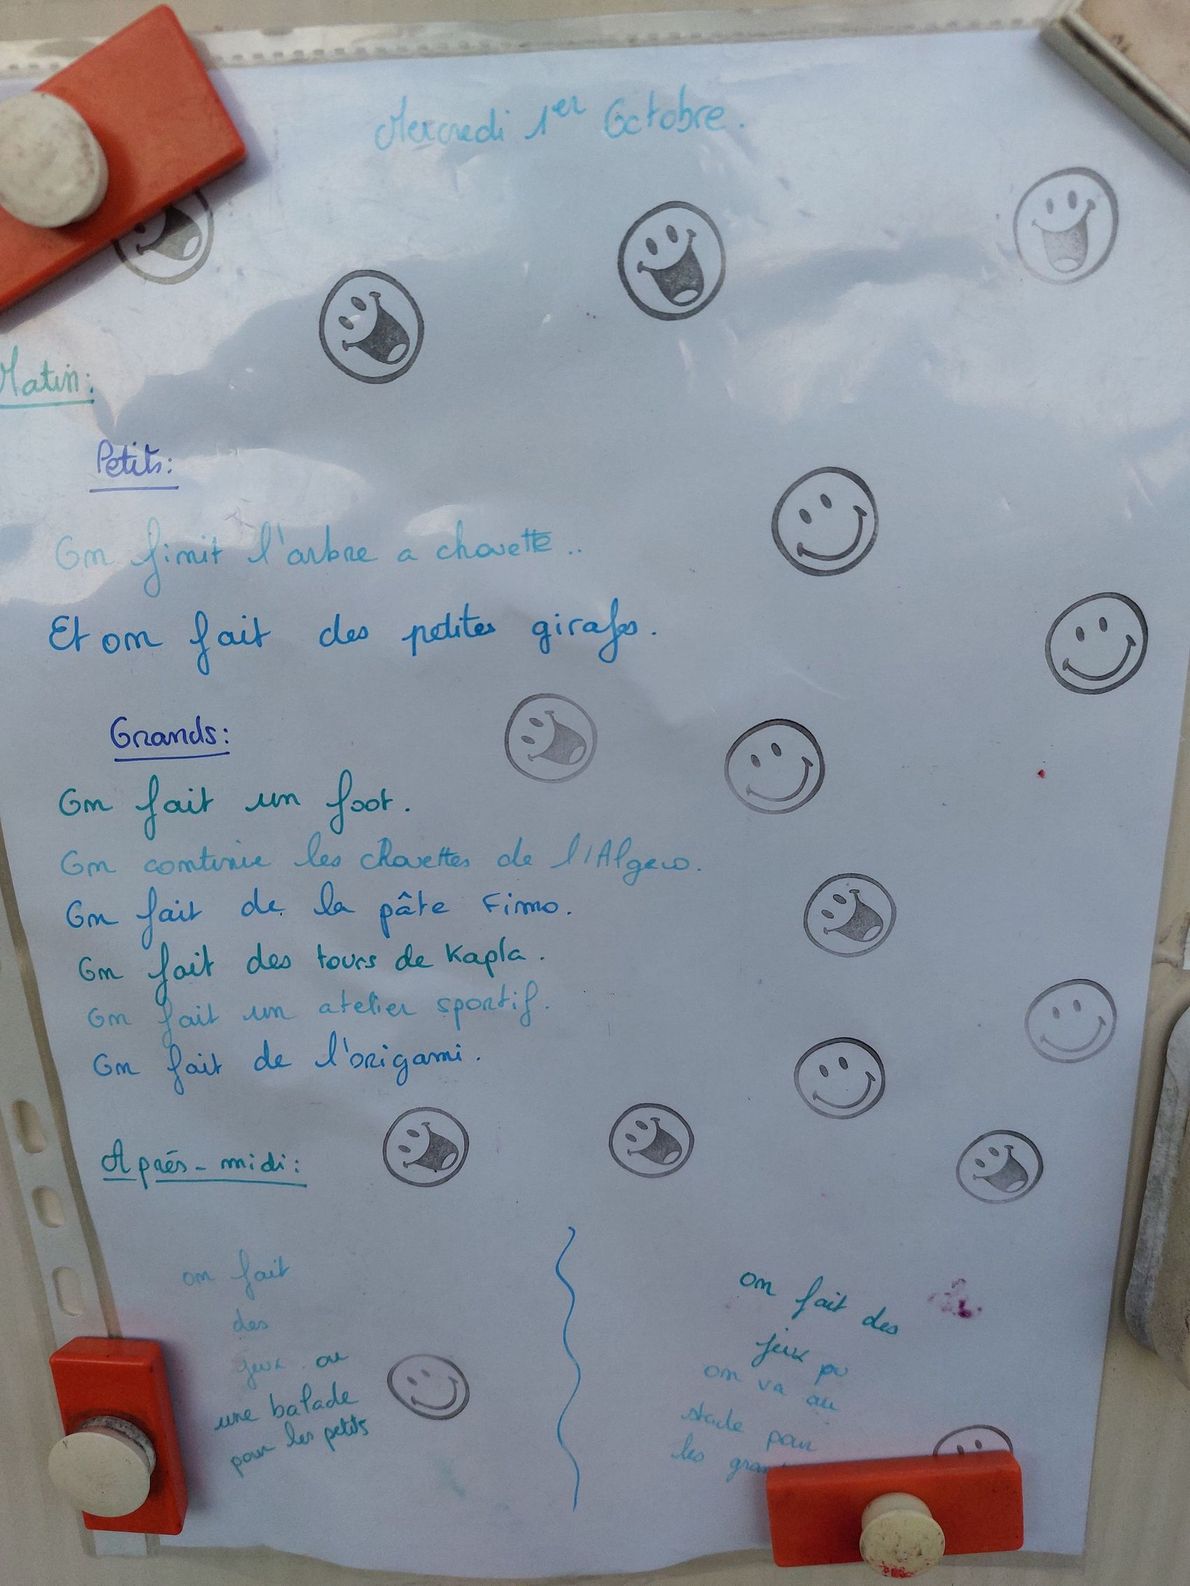 Mercredi 1er Octobre.
Matin:
Petits:
On finit l'arbre a chouette..
Et on fait des petites girafes.
Grands:
On fait un foot.
On continue les chouettes de l'Algeco.
On fait de la pâte Fimo.
On fait des tours de Kapla.
On fait un atelier sportif.
On fait de l'origami.
Après-midi:
on fait
des
jeux ou
une balade
pour les petits
on fait des
jeux ou
on va au
stade pour
les